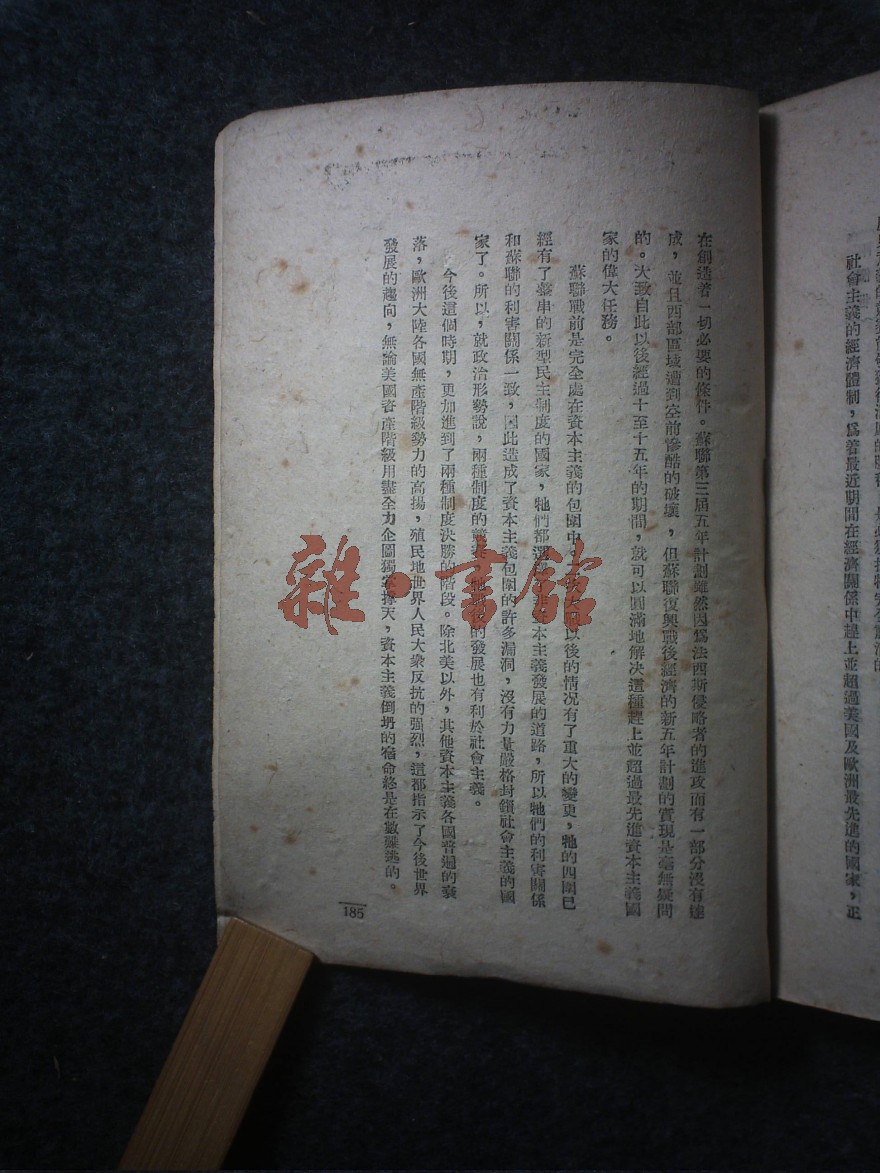 社會主義的經濟體制，爲着最近期間在經濟關係中趕上並超過美國及歐洲最先進的國家，正
在創造著一切必要的條件。蘇聯第三屆五年計劃雖然因爲法西斯侵略者的進攻而有一部分沒有達
成，並且西部區域遭到空前慘酷的破壞，但蘇聯復興戰後經濟的新五年計劃的實現是毫無疑問
的。大致自此以後經過十至十五年的期間，就可以圓滿地解决這種趕上並超過最先進資本主義國
家的偉大任務。
蘇聯戰前是完全處在資本主義的包圍中，以後的情况有了重大的變更，牠的四圍已
經有了整串的新型民主制度的國家，牠們都選擇了非資本主義發展的道路，所以牠們的利害關係
和蘇聯的利害關係一致，因此造成了資本主義包圍的許多漏洞，沒有力量嚴格封鎖社會主義的國
家了。所以，就政治形勢說，兩種制度的競賽，牠最後的發展也有利於社會主義。
今後這個時期，更加進到了兩種制度决勝的階段。除北美以外，其他資本主義各國普遍的衰
落，歐洲大陸各國無產階級勢力的高揚，殖民地世界人民大衆反抗的强烈，這都指示了今後世界
發展的趨向，無論美國資產階級用盡全力企圖獨掌擎天，資本主義倒坍的宿命終是在數難逃的。
185
雜·書館